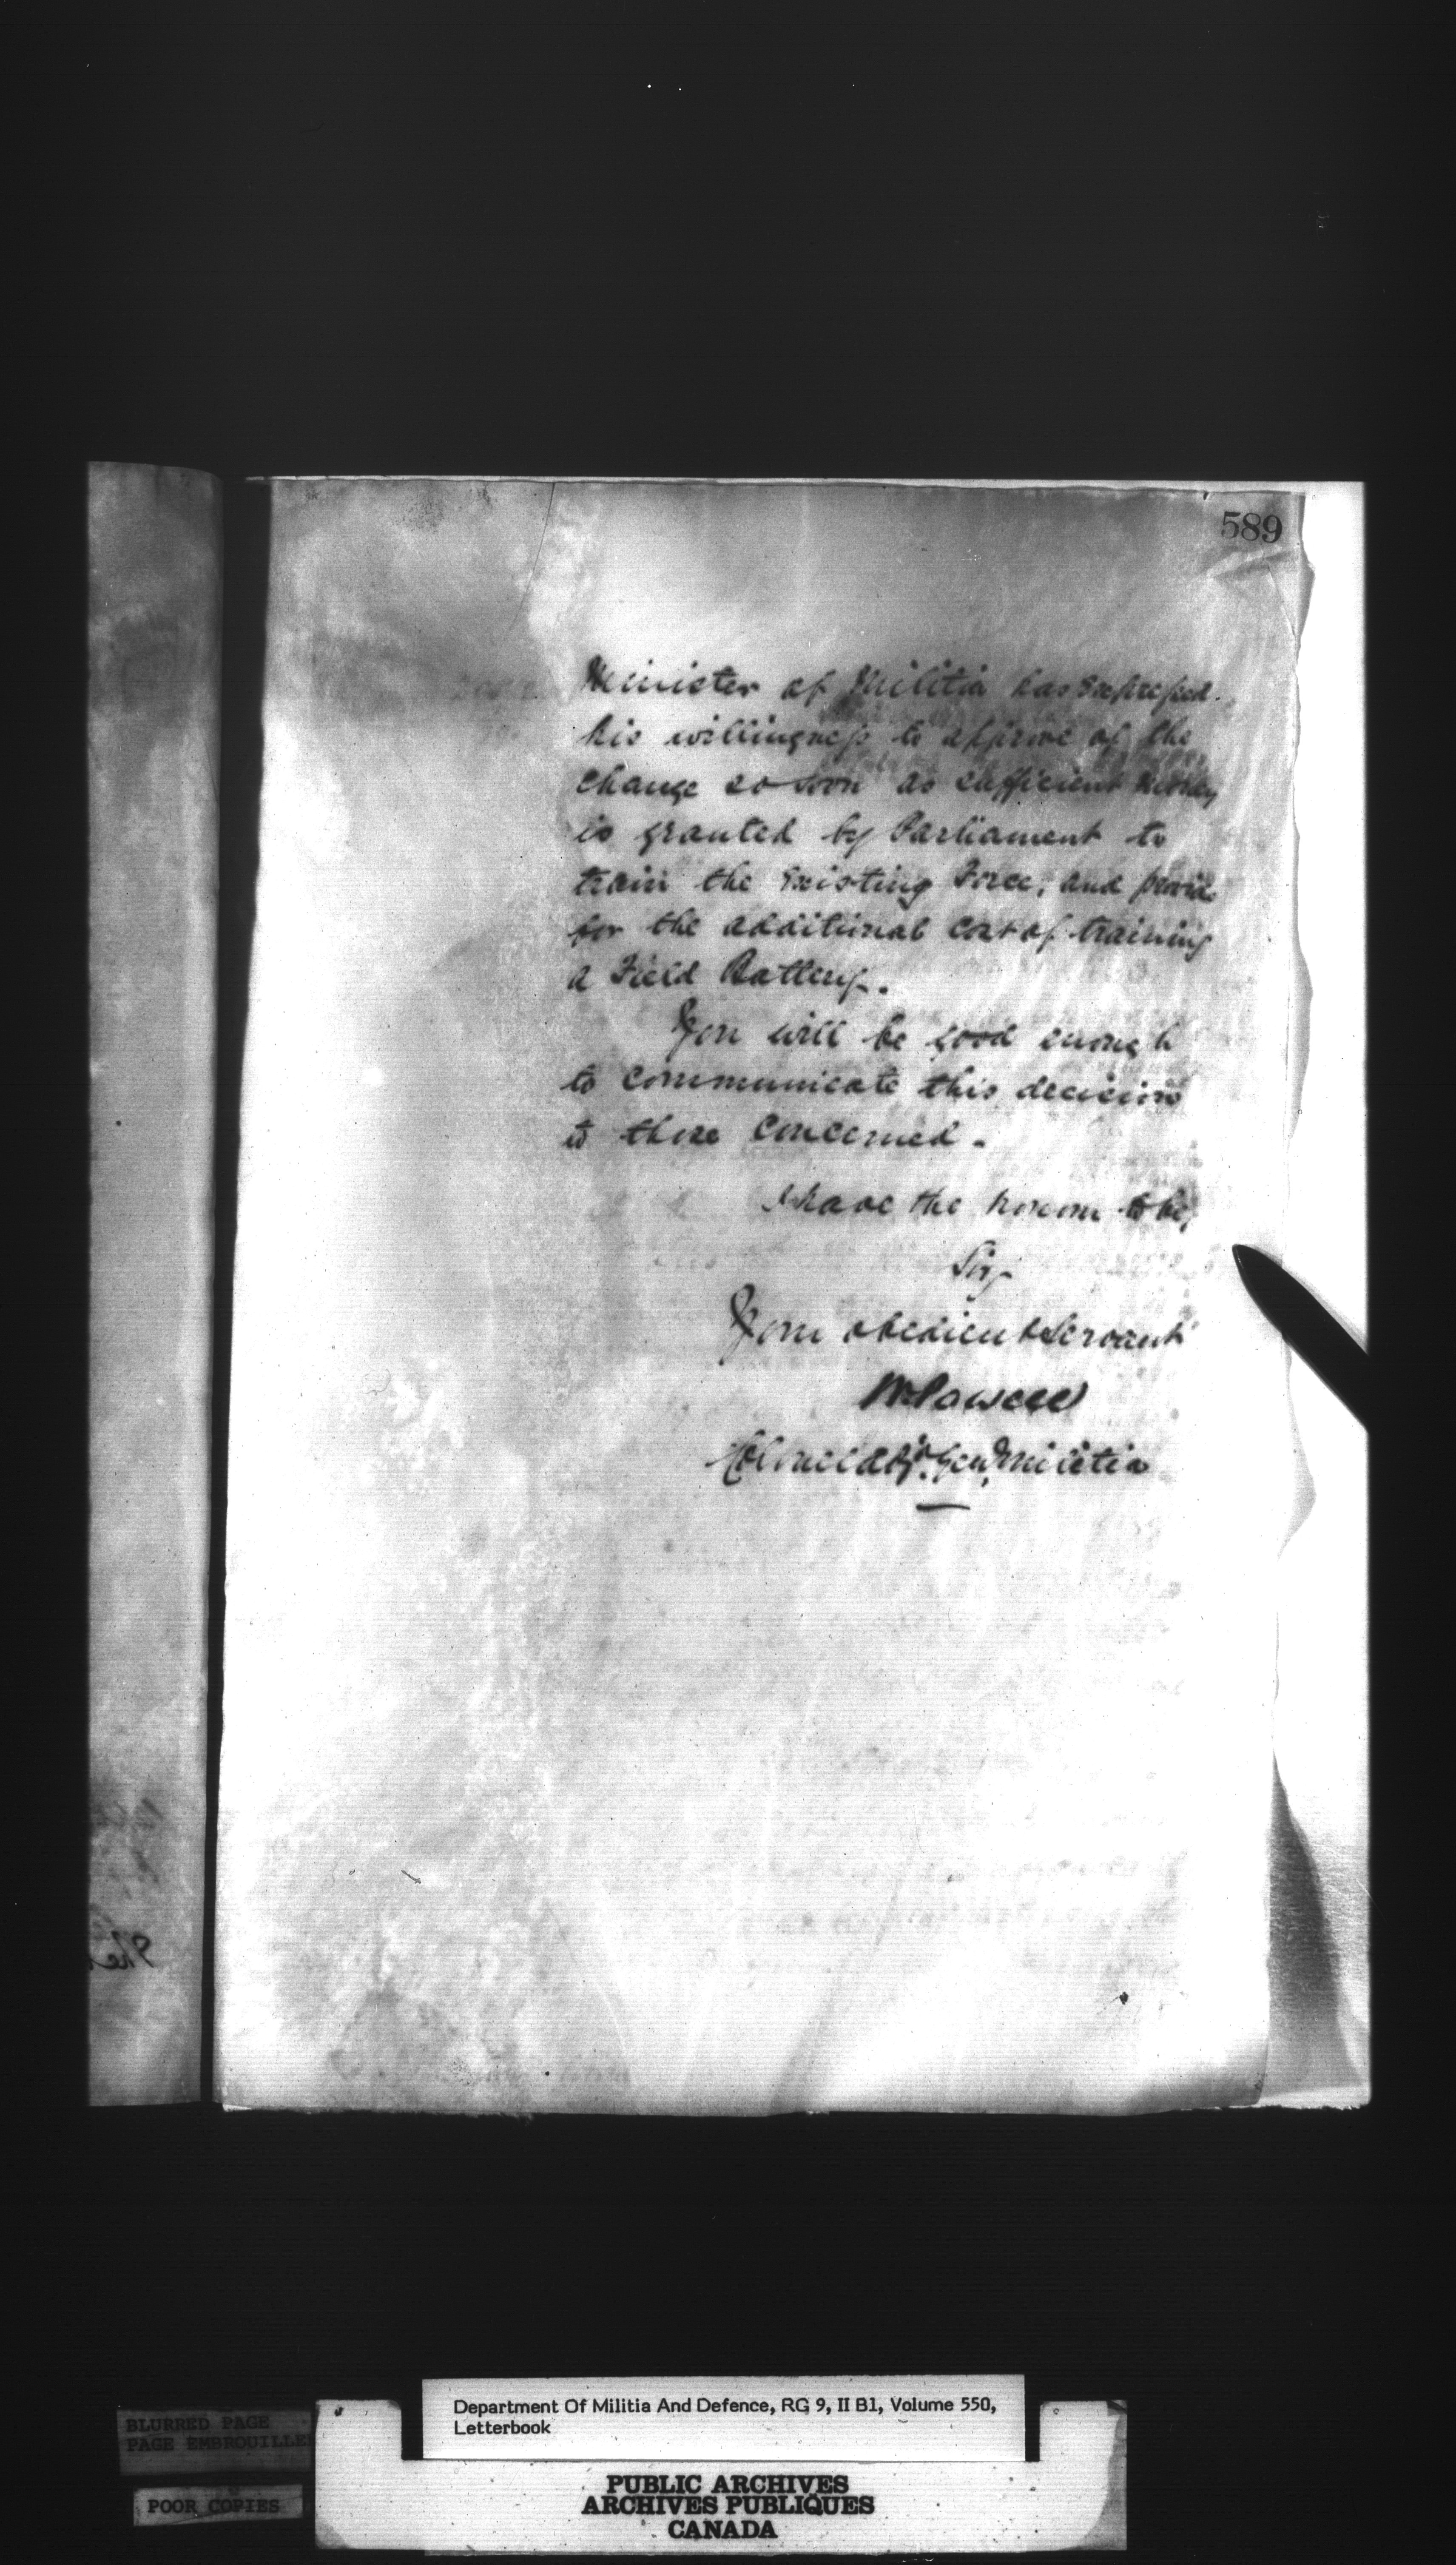 589
Minister of Militia has expressed
his willingness to approve of the
change so soon as sufficient money
is granted by Parliament to
train the Existing Force, and provide
for the additional cost of training
a Field Battery.
You will be good enough
to communicate this decision
to those concerned.
I have the honour to be,
Sir,
Your obedient Servant
W. Powell
Colonel Adjt. Genl. Militia
The
Department Of Militia And Defence, RG 9, II B1, Volume 550,
Letterbook
BLURRED PAGE
PAGE EMBROUILLE
POOR COPIES
PUBLIC ARCHIVES
ARCHIVES PUBLIQUES
CANADA